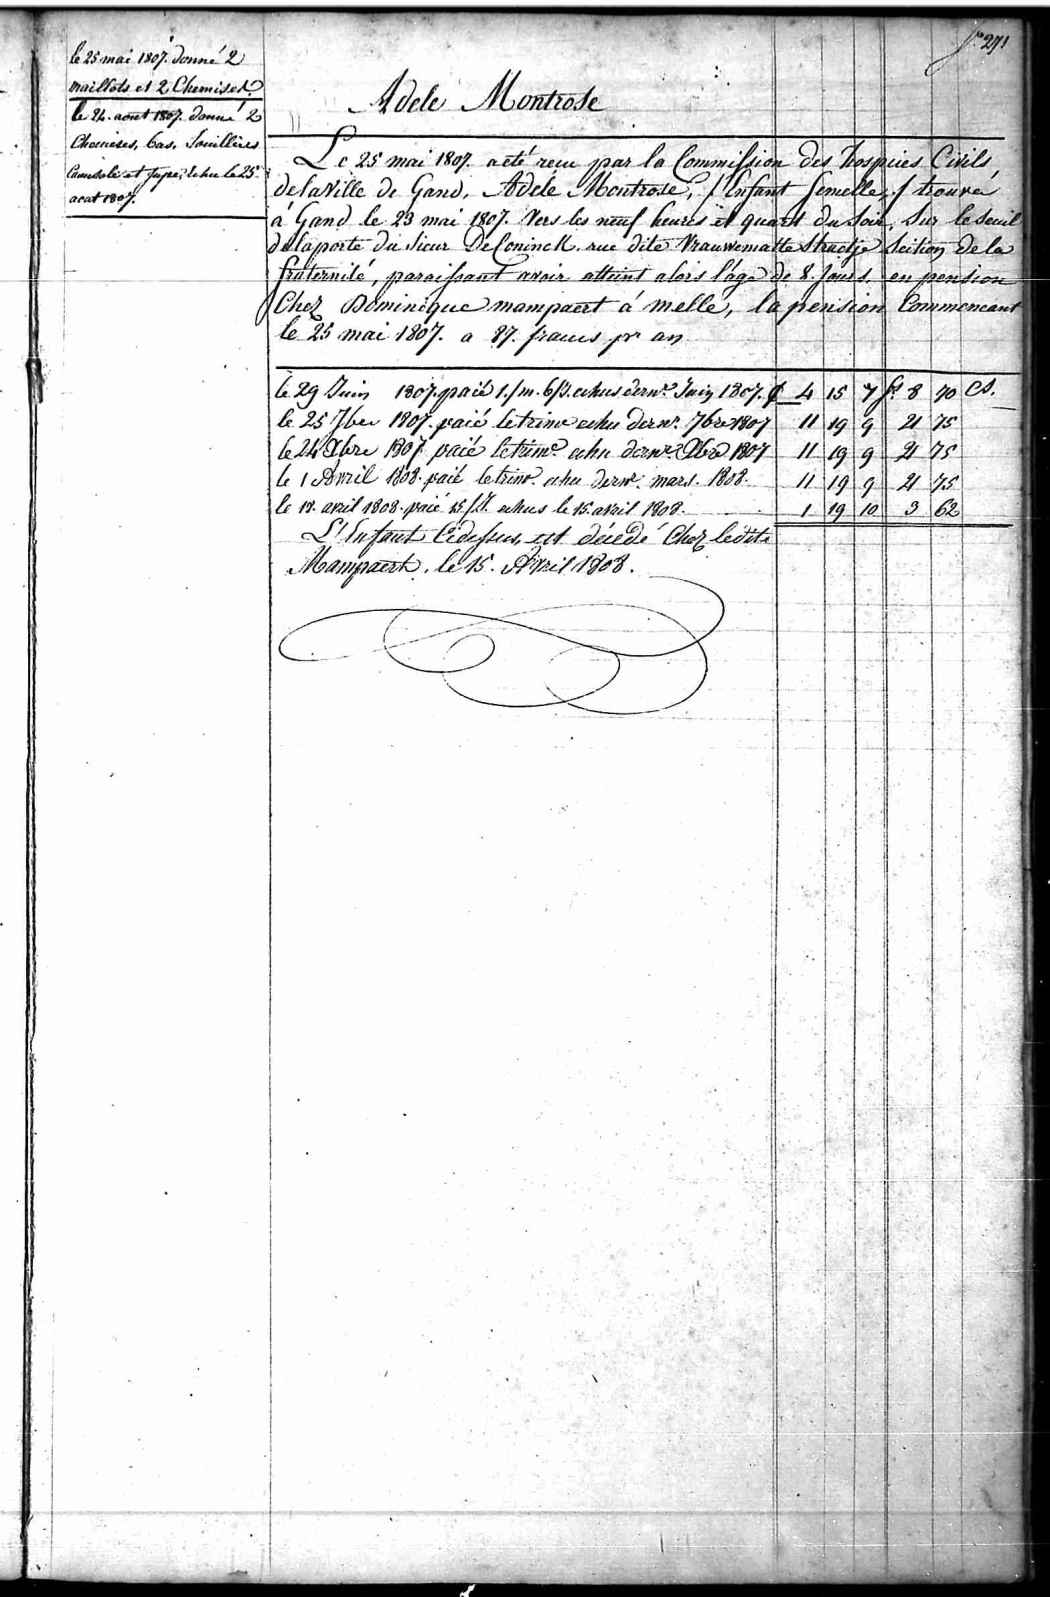 fo 271
le 25 mai 1807. donné 2
maillots et 2 Chemises.
le 24. aout 1807. donné 2
Chemises, bas, Souillères
Camisole et Jupe, echu le 25
aout 1807.
Adele Montrose
Le 25 mai 1807. a eté recu par la Commission des hospices Civils
de la Ville de Gand, Adele Montrose, /Enfant femelle,/ trouvé
à Gand le 23 mai 1807. Vers les neuf heures et quart du Soir, Sur le seuil
de la porte du Sieur DeConinck. rue dite Vrauwematte Straetje Section de la
fraternité, paraissant avoir atteint alors l'age de 8. Jours. en pension
Chez Dominique mampaert à melle, la pension Commencant
le 25 mai 1807. a 87. francs pr an
le 29 Juin 1807. paié 1./m. 6/J. echus dernr. Juin 1807. 4 15 7 fs. 8 70 Cs.
le 25 7ber 1807. paié le trime echu dernr. 7bre 1807 11 19 9 21 75
le 24 Xbre 1807 paié le trime. echu dernr. Xbre 1807 11 19 9 21 75
le 1 Avril 1808. paié le trime. echu dernr. mars. 1808. 11 19 9 21 75
le avril 1808. paié 15/J. echus le 15. avril 1808. 1 19 10 3 62
L'Enfant Cidessus, est décedé Chez ledit
Mampaert, le 15. Avril 1808.